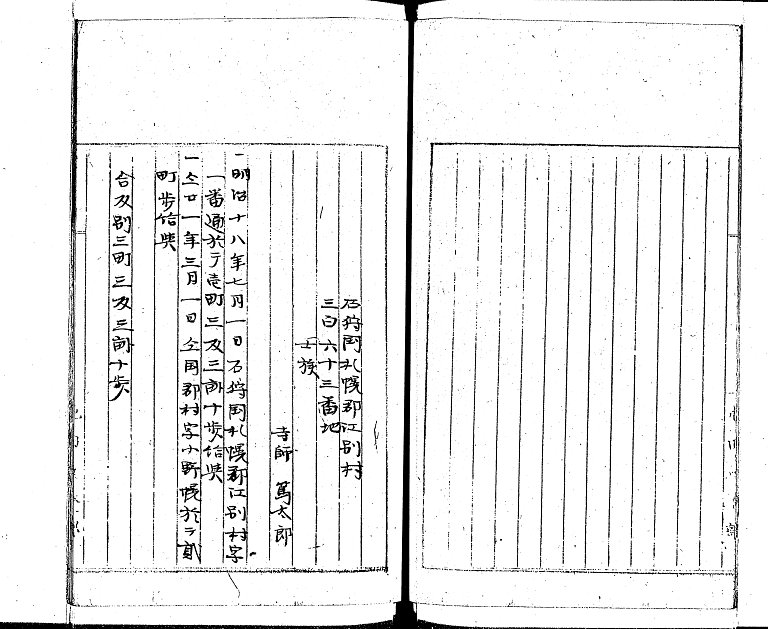 石狩国札幌郡江別村
三百六十三番地
士族
寺師 篤太郎
一明治十八年七月一日石狩国札幌郡江別村字
一番通於テ壱町三反三畝十歩給与
一仝廿一年三月一日仝国郡村字小野幌於テ貳
町歩給与
合反別三町三反三畝十歩